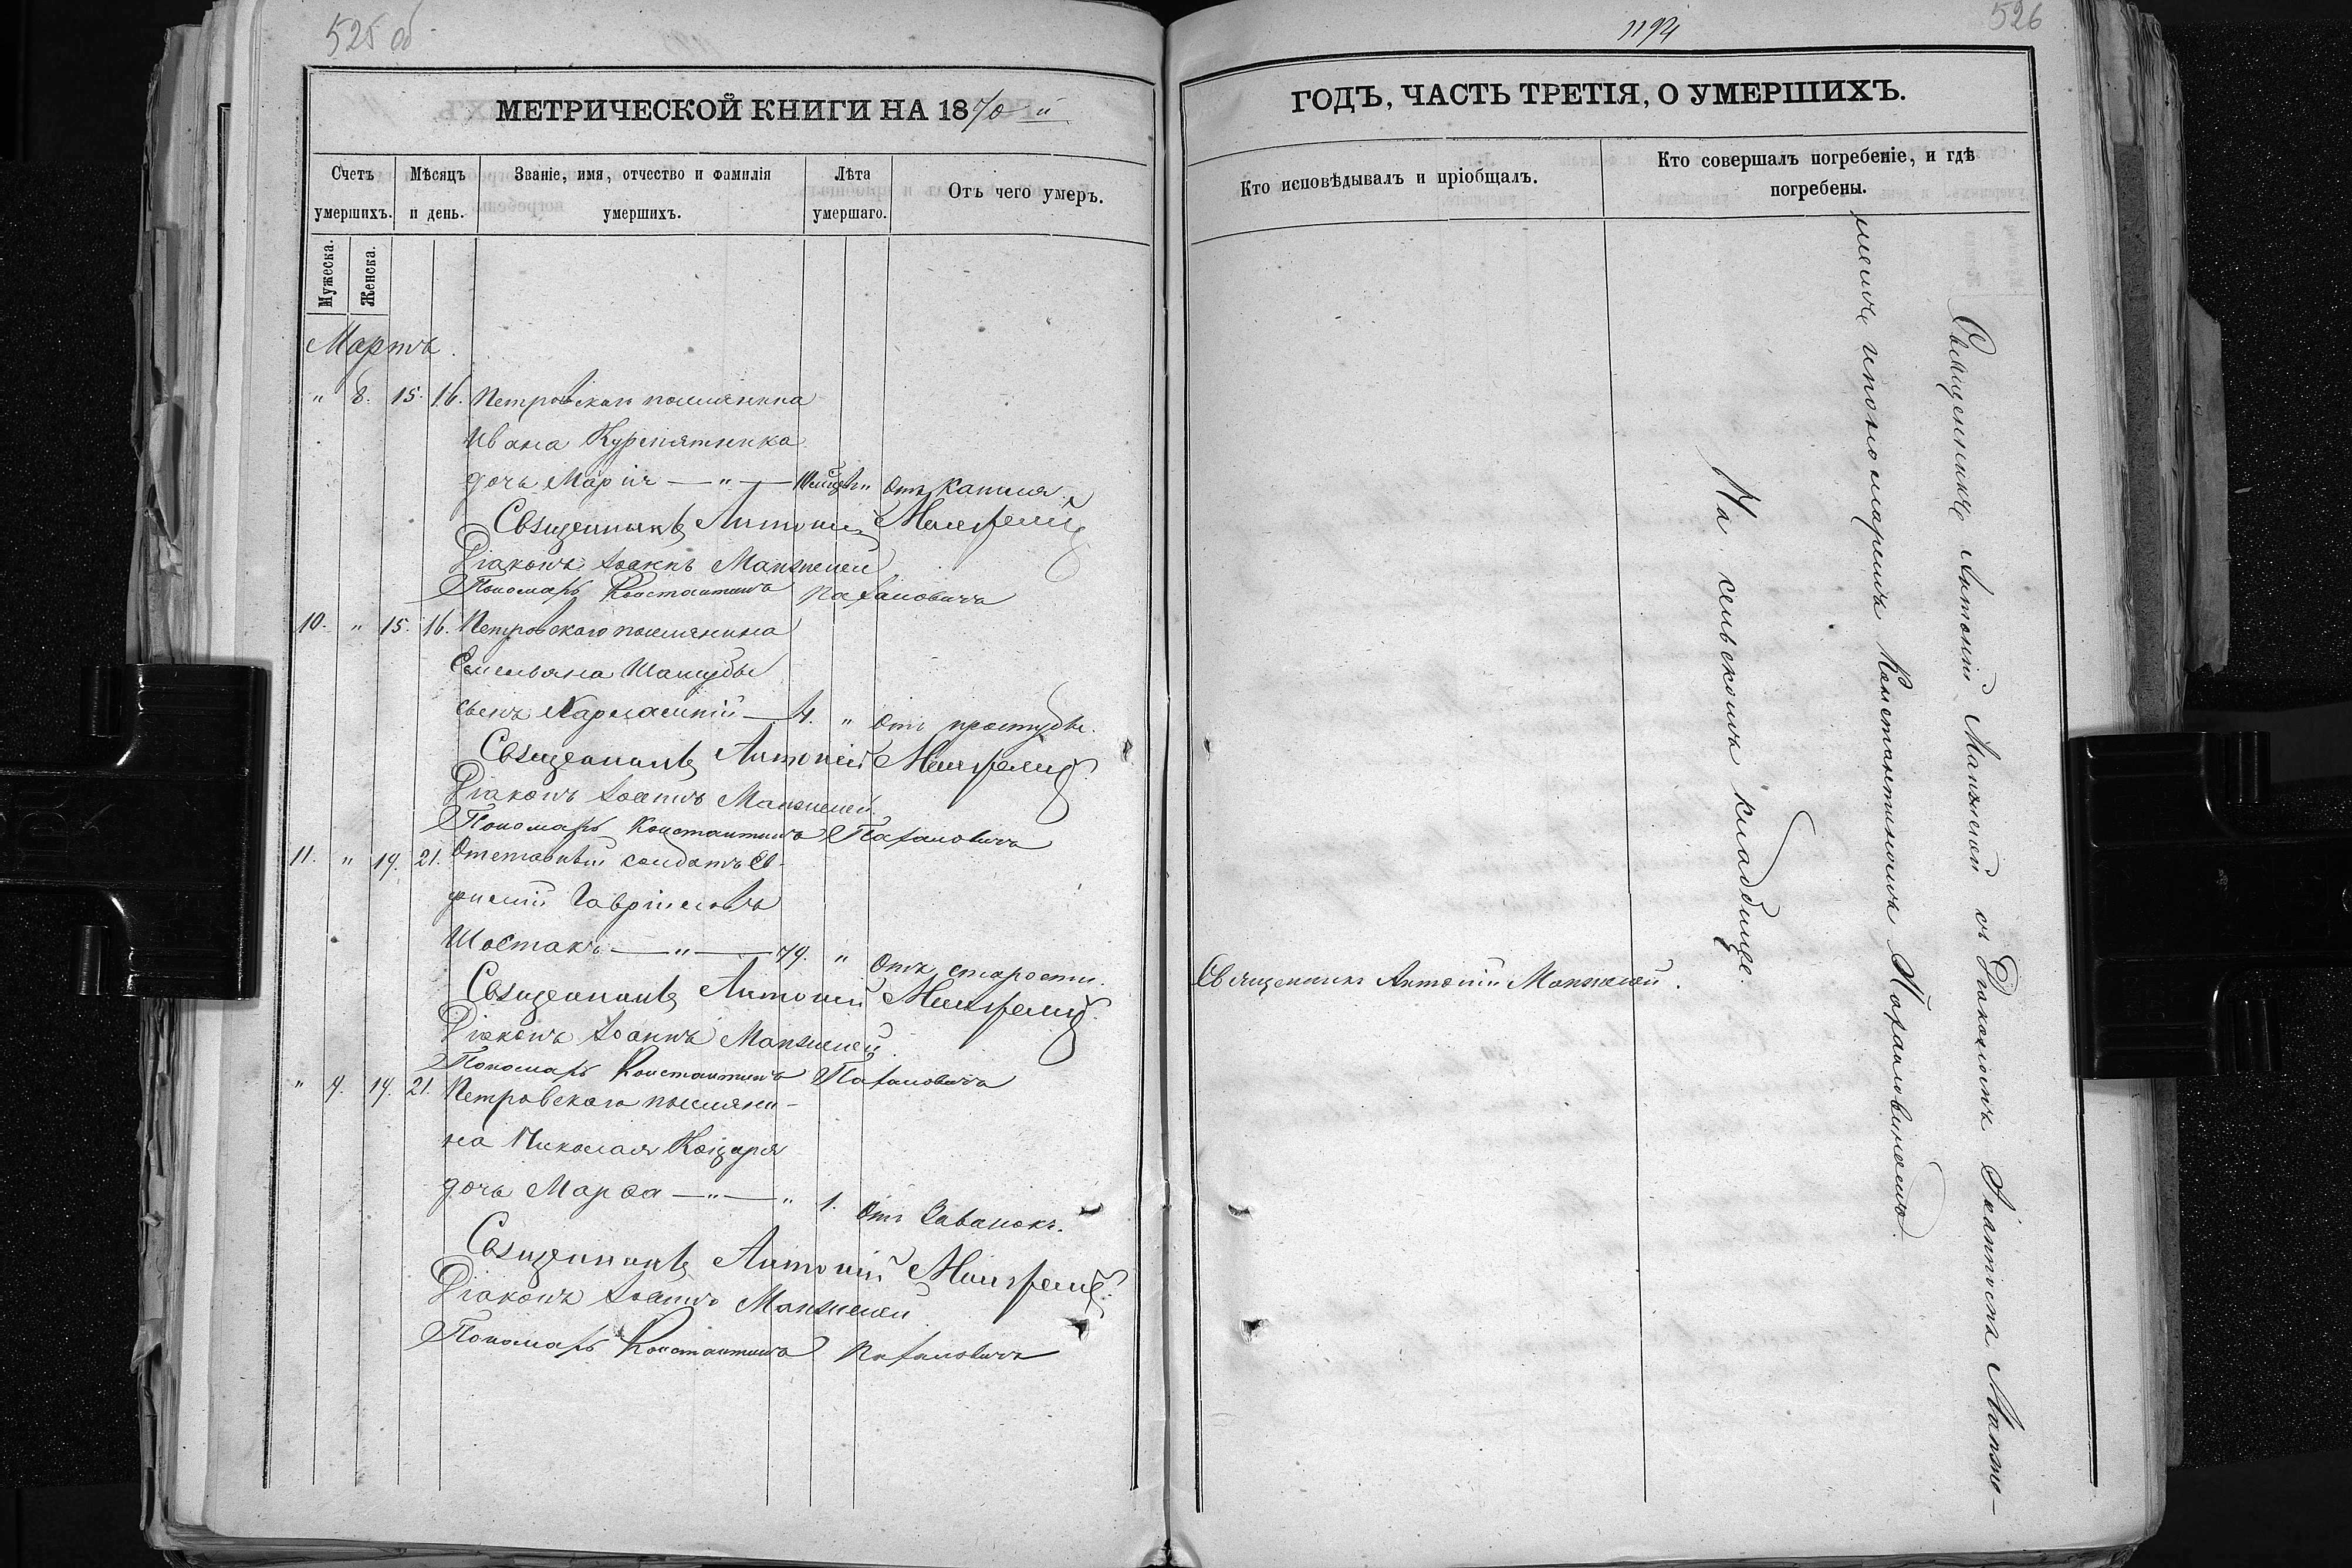 525 об
МЕТРИЧЕСКОЙ КНИГИ НА 1870 й
Счетъ умершихъ.
Мѣсяцъ и день.
Званіе, имя, отчество и фамилія умершихъ.
Лѣта умершаго.
Отъ чего умеръ.
Мужеска.
Женска.
Мартъ.
" 8. 15. 16. Петровскаго поселянина
Ивана
дочь Марія — " — Отъ кашля.
Священникъ Антоній Манжелей
Діаконъ Іоаннъ Манжелей
Пономарь Константинъ Парановичъ
10. " 15. 16. Петровского поселянина
Емельяна Шашубы
сынъ — 4. " Отъ простуды.
Священникъ Антоній Манжелей
Діаконъ Іоаннъ Манжелей
Пономарь Константинъ Парановичъ
11. " 19. 21. Отставный солдатъ Ев-
фимій Гавріиловъ
Шостакъ — " — 79. " Отъ старости.
Священникъ Антоній Манжелей
Діаконъ Іоаннъ Манжелей
Пономарь Константинъ Парановичъ
" 9. 19. 21. Петровского поселяни-
на Николая Коцаря
дочь Марѳа — " — " 1. Отъ
Священникъ Антоній Манжелей
Діаконъ Іоаннъ Манжелей
Пономарь Константинъ Парановичъ
1194
526
ГОДЪ, ЧАСТЬ ТРЕТІЯ, О УМЕРШИХЪ.
Кто исповѣдывалъ и пріобщалъ.
Кто совершалъ погребеніе, и гдѣ
погребены.
Священникъ Антоній Манжелей.
Священникъ Антоній Манжелей съ Діакономъ Іоанномъ Манже-
леемъ и пономаремъ Константиномъ Парановичемъ
На сельскомъ кладбище.